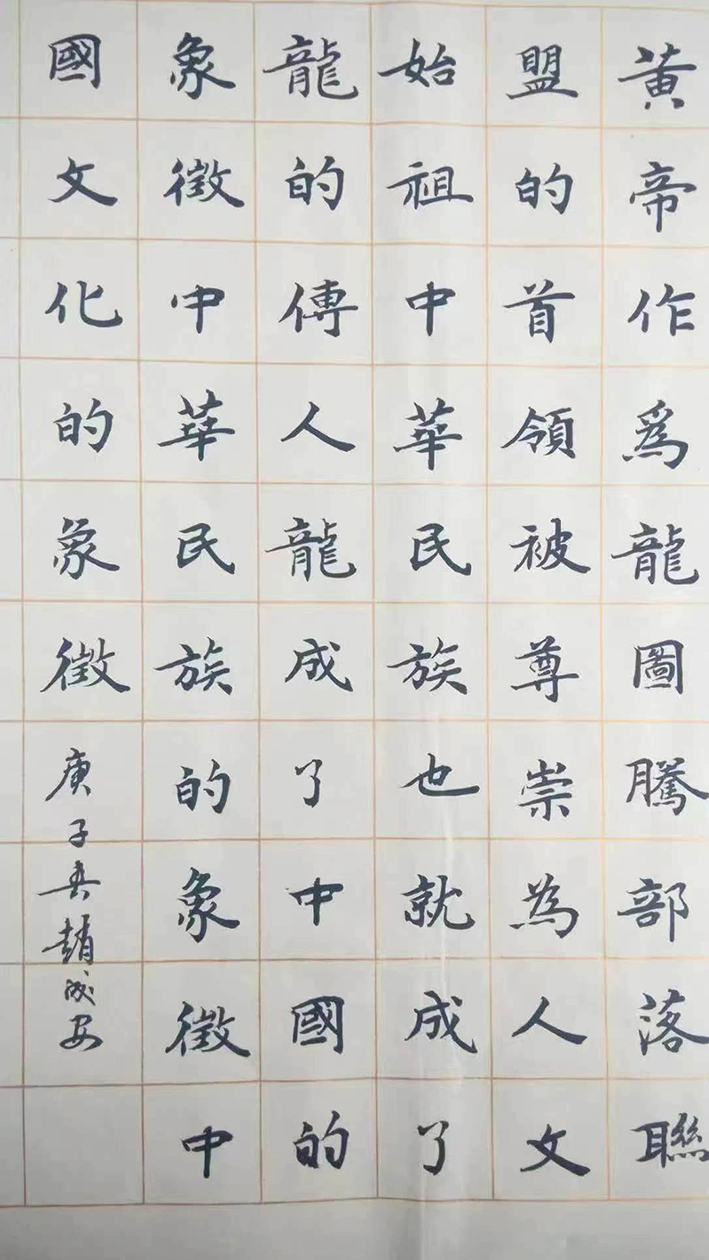 黃帝作爲龍圖騰部落聯
盟的首領被尊崇為人文
始祖中華民族也就成了
龍的傳人龍成了中國的
象徵中華民族的象徵中
國文化的象徵
庚子春趙成安